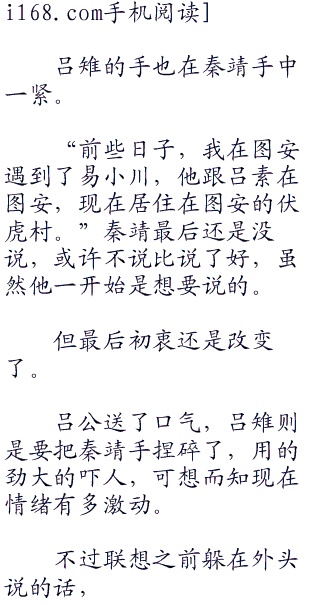 i168.com手机阅读]
吕雉的手也在秦靖手中
一紧。
“前些日子，我在图安
遇到了易小川，他跟吕素在
图安，现在居住在图安的伏
虎村。”秦靖最后还是没
说，或许不说比说了好，虽
然他一开始是想要说的。
但最后初衷还是改变
了。
吕公送了口气，吕雉则
是要把秦靖手捏碎了，用的
劲大的吓人，可想而知现在
情绪有多激动。
不过联想之前躲在外头
说的话，